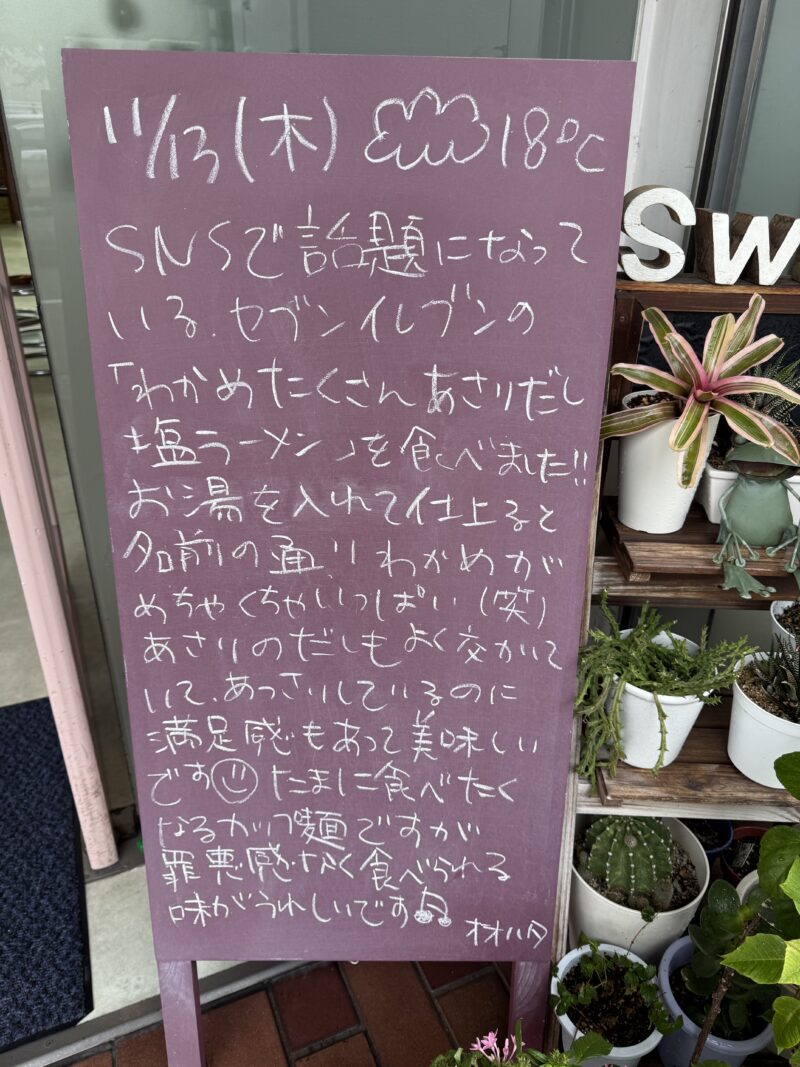 11/13(木) 18℃
SNSで話題になって
いる、セブンイレブンの
「わかめたくさんあさりだし
塩ラーメン」を食べました!!
お湯を入れて仕上ると
名前の通りわかめが
めちゃくちゃいっぱい(笑)
あさりのだしもよく交かいて
いて、あっさりしているのに
満足感もあって美味しい
です たまに食べたく
なるカップ麺ですが
罪悪感なく食べられる
味がうれしいです
オオハタ
SW